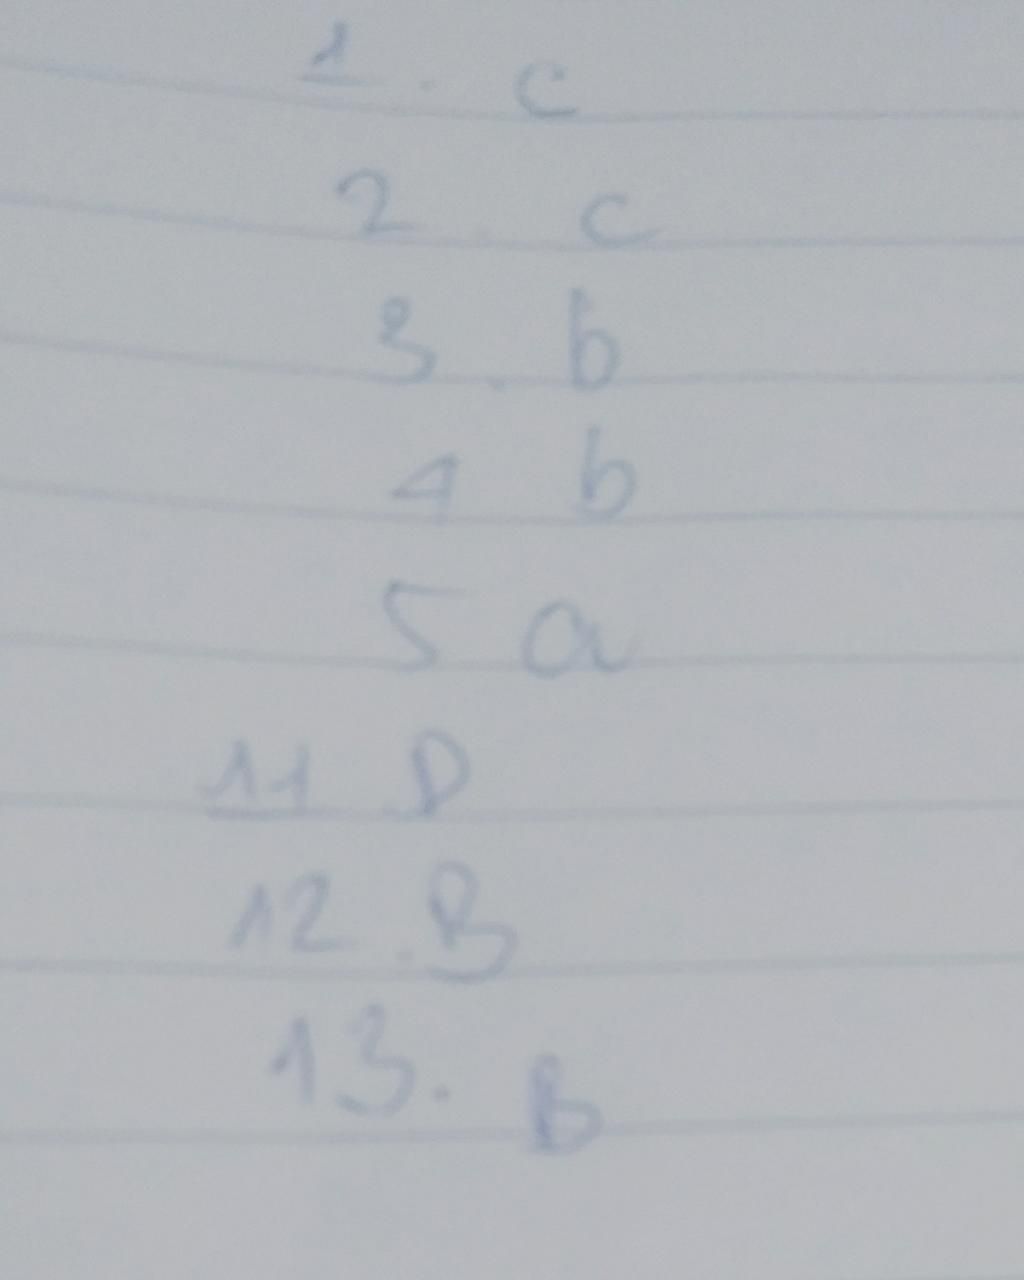 1. c
2. c
3. b
4 b
5 a
11 D
12. B
13. B